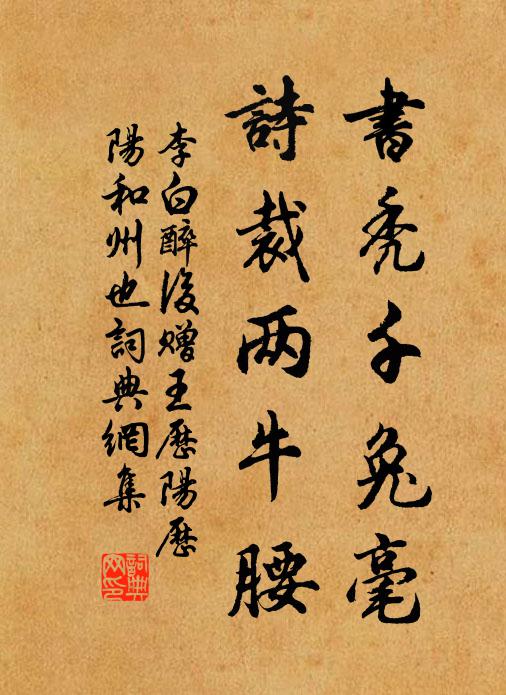 書禿千兔毫
詩裁两牛腰
李白醉後贈王歷陽歷
陽和州也詞典網集
詞典网印